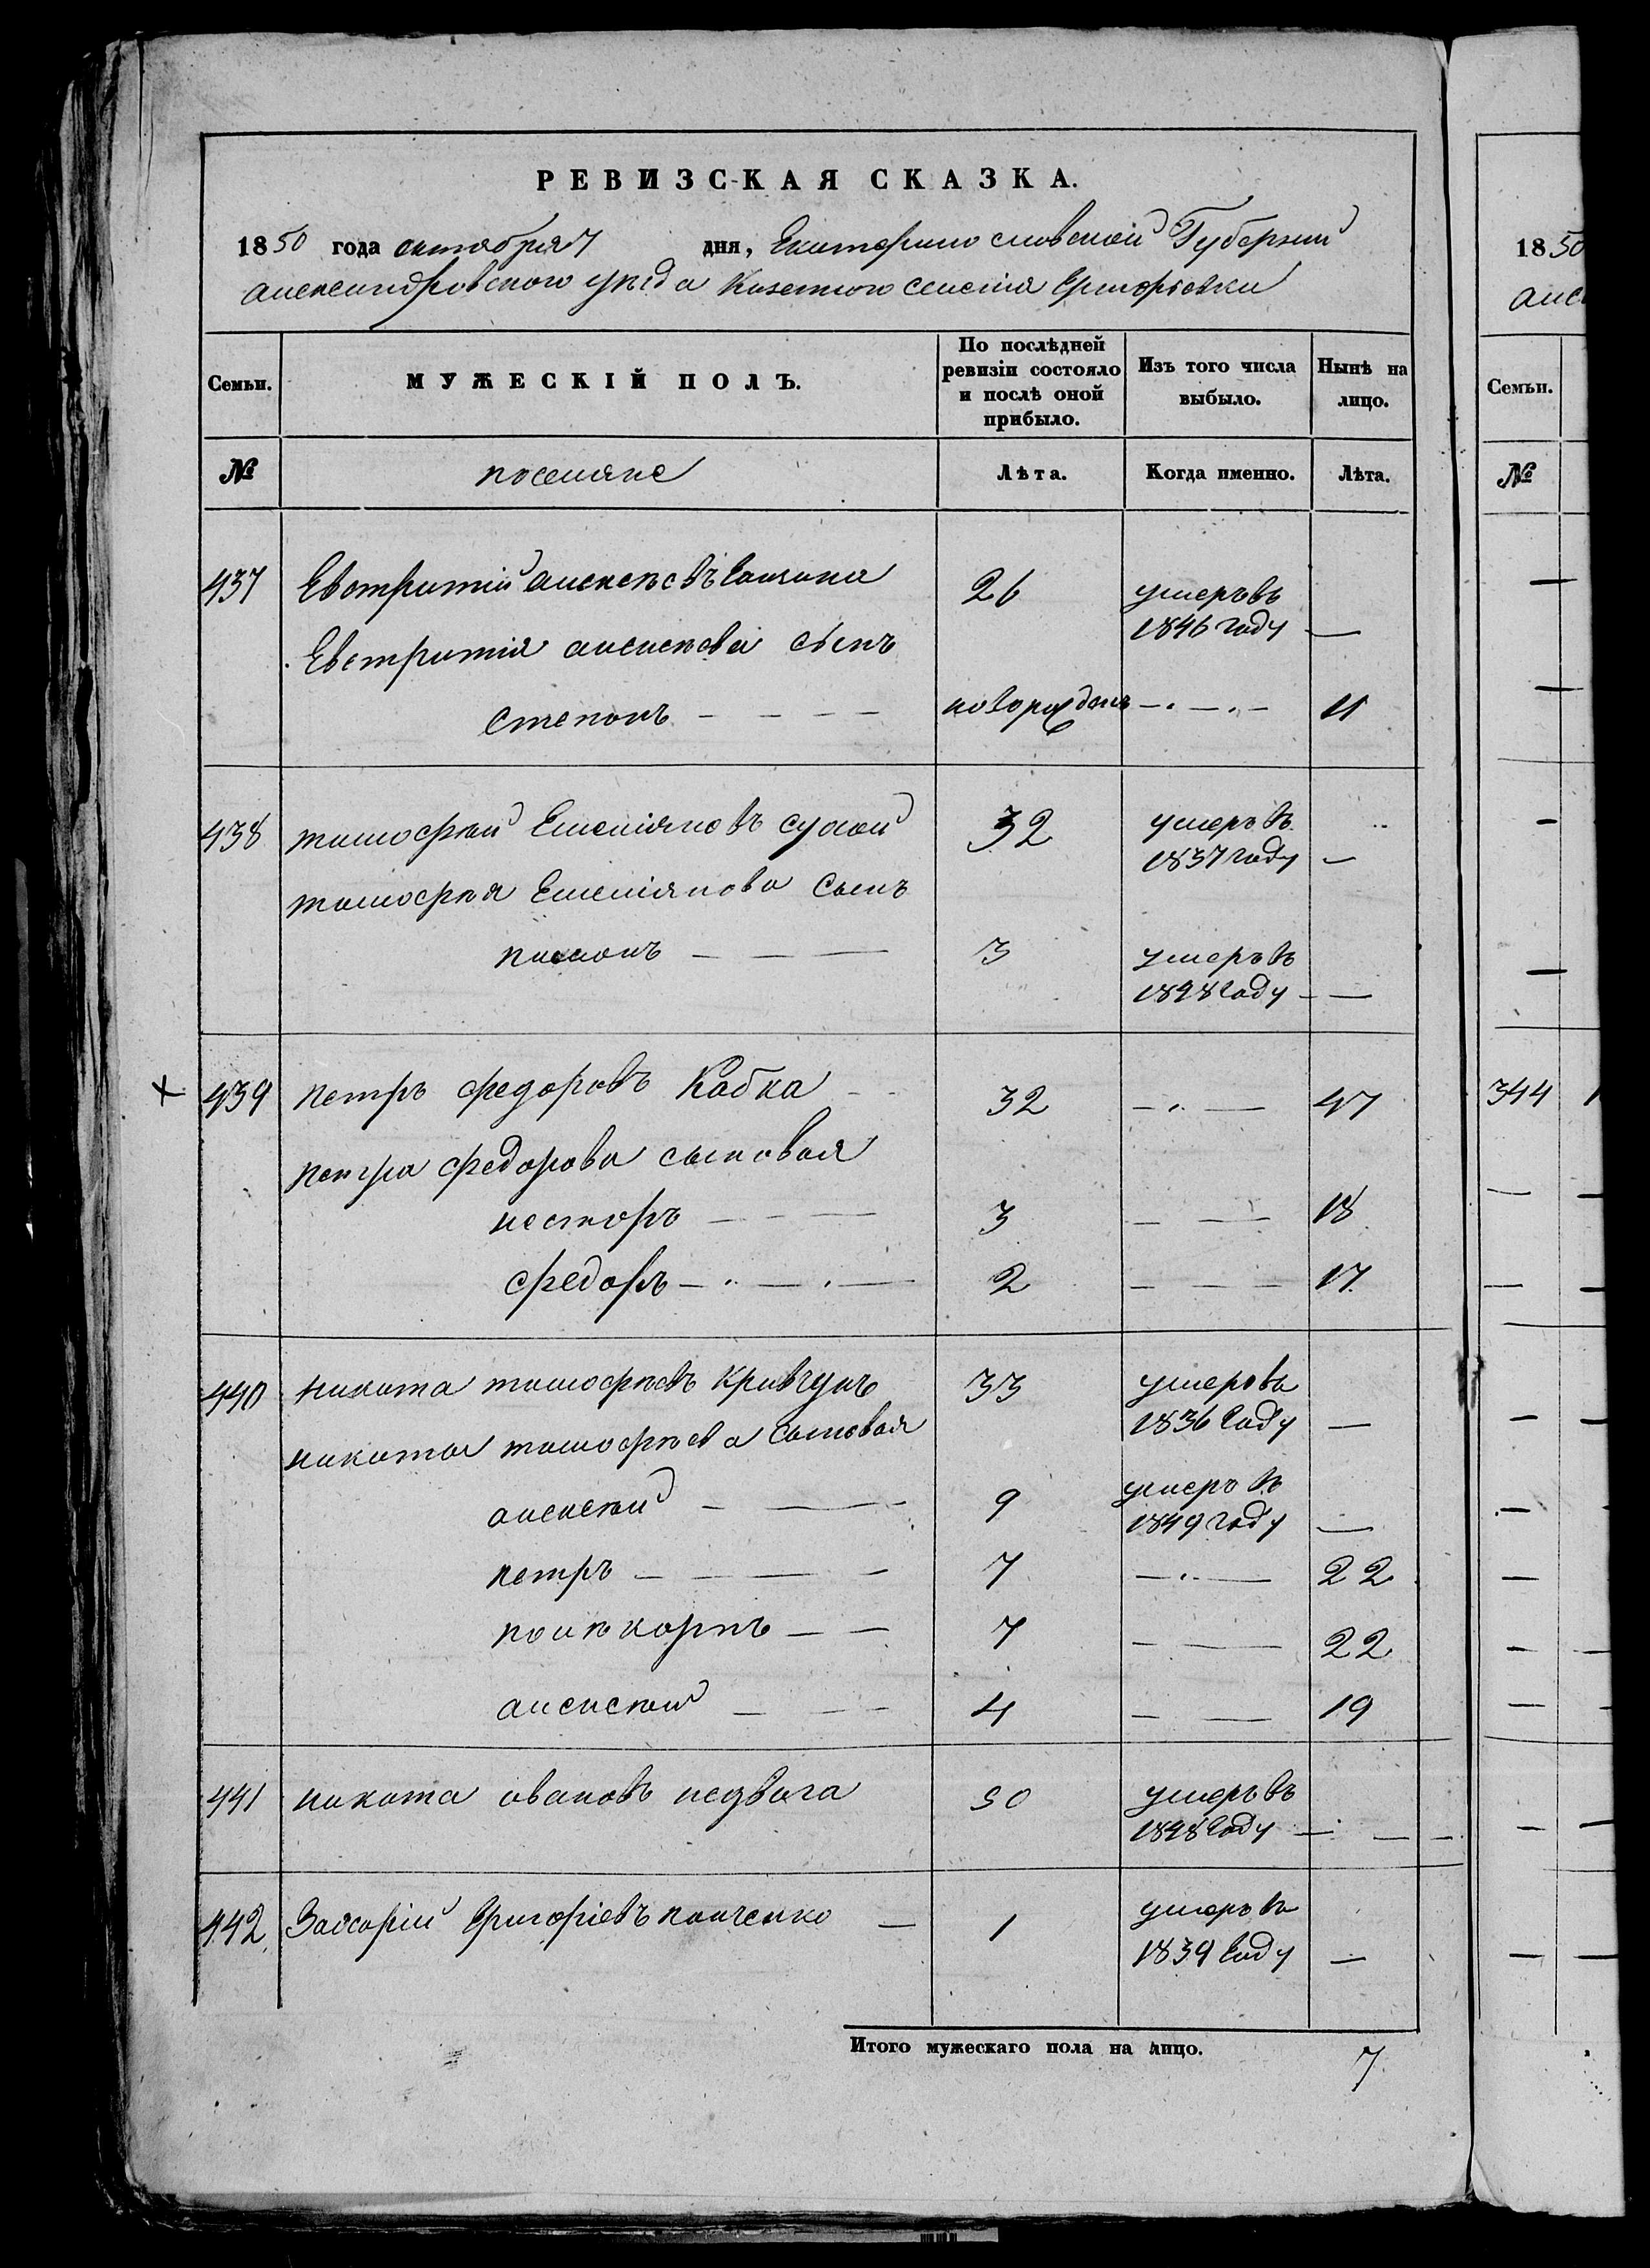 РЕВИЗСКАЯ СКАЗКА.
1850 года октября 7 дня, Екатеринославской Губернии
александровского уезда Казенного селенiя Григорьевки
Семьи. МУЖЕСКІЙ ПОЛЪ. По послѣдней ревизіи состояло и послѣ оной прибыло. Изъ того числа выбыло. Нынѣ на лицо.
№ поселяне Лѣта. Когда именно. Лѣта.
437 Евстратий алексѣевъ 26 умеръ въ 1846 году —
Евстратия алексѣева сынъ
степанъ — — — — новорожденъ — 11
438 тимофей Емельяновъ сухой 32 умеръ въ 1837 году —
тимофея Емельянова сынъ
пименъ — — — 3 умеръ въ 1848 году —
439 петръ федоровъ Кабка 32 — 47
петра федорова сыновья
несторъ — — — 3 — — 18
федоръ — — — 2 — — 17
440 никита тимофѣевъ Кривчунъ 33 умеръ въ 1836 году —
никиты тимофѣева сыновья
алексѣй — — 9 умеръ въ 1849 году —
петръ — — — — 7 — 22
поликарпъ — — 7 — — 22
алексѣй — — — 4 — — 19
441 никита ивановъ недвига 50 умеръ въ 1848 году —
442 Захарiй Григорiевъ панченко — 1 умеръ въ 1839 году —
Итого мужескаго пола на лицо. 7
1850
Семьи.
№
344